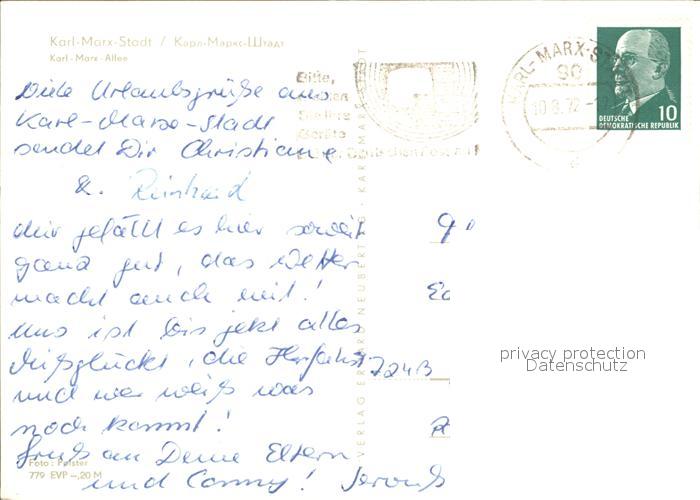 Karl-Marx-Stadt / Карл-Маркс-Штадт
Karl-Marx-Allee
Viele Urlaubsgrüße aus
Karl-Marx-Stadt
sendet Dir Christiane
u. Reinhard
Mir gefällt es hier soweit
ganz gut, das Wetter
macht auch mit!
Uns ist bis jetzt alles
mißglückt, die Herfahrt
und wer weiß was
noch kommt!
Gruß an Deine Eltern
und Conny!
Foto: Pörster
779 EVP -,20 M
VERLAG ERHARD NEUBERT KG · KARL-MARX-STADT
Bitte,
Sie Ihre
Geräte
KARL-MARX-ST
90
10.8.72
DEUTSCHE
DEMOKRATISCHE REPUBLIK
10
7243
privacy protection
Datenschutz